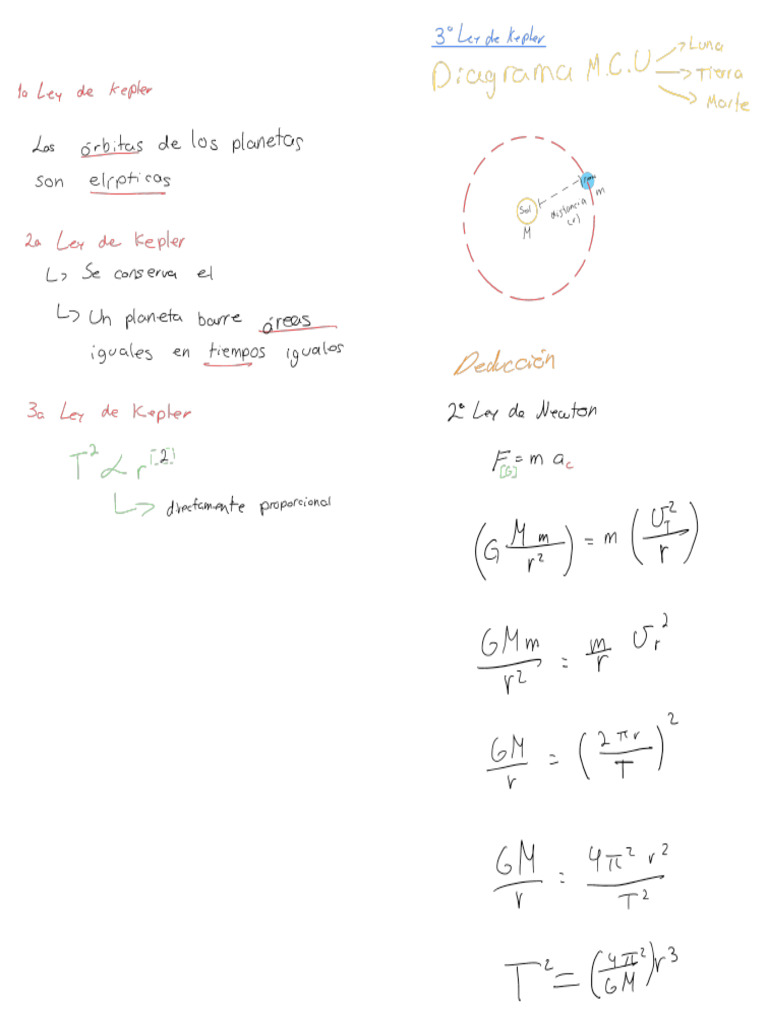 1a Ley de Kepler
Las órbitas de los planetas
son elípticas
2a Ley de Kepler
↳ Se conserva el
↳ Un planeta barre áreas
iguales en tiempos iguales
3a Ley de Kepler
T² ∝ r^[2]
↳ directamente proporcional
3ª Ley de Kepler
Diagrama M.C.U → Luna
→ Tierra
→ Marte
Sol
M
distancia
(r)
m
Deducción
2ª Ley de Newton
F_[G] = m a_c
(G M m / r²) = m (v_T² / r)
GMm / r² = m/r v_r²
GM / r = (2πr / T)²
GM / r = 4π² r² / T²
T² = (4π² / GM) r³